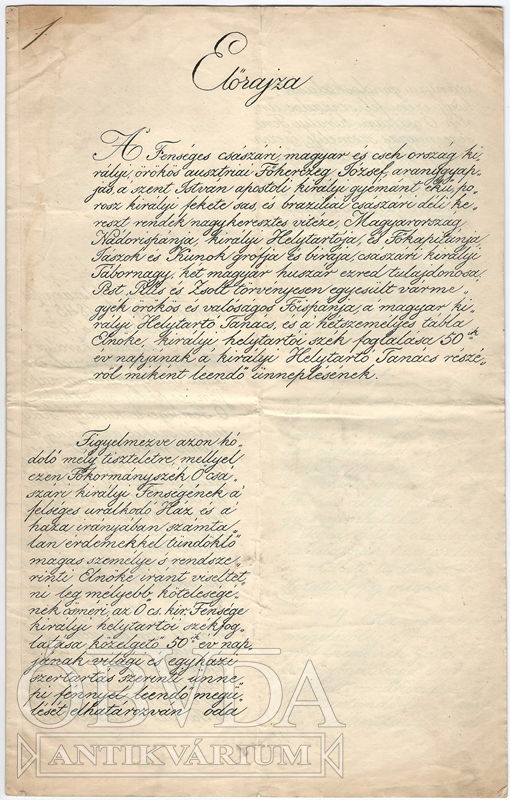 1.
Előrajza
A Fenséges császári, magyar és cseh ország ki„
rályi, örökös ausztriai Főherczeg József, arany gyap„
jas, a szent István apostoli királyi gyémánt ékü, po„
rosz királyi fekete sas, és braziliai császári déli ke„
reszt rendek nagykeresztes vitéze, Magyarország
Nádorispánja, királyi Helytartója, és Főkapitánja,
Jászok és Kunok grófja és birája, császári királyi
Tábornagy, két magyar huszár ezred tulajdonosa,
Pest, Pilis és Zsolt törvényesen egyesült várme„
gyék örökös és valóságos Főispánja, a magyar ki„
rályi Helytartó Tanács, és a hétszemélyes tábla
Elnöke, királyi helytartói szék foglalása 50ik
év napjának a királyi Helytartó Tanács részé„
ről miként leendő ünneplésének.
Figyelmezve azon hó„
doló mély tiszteletre, mellyel
ezen Főkormányszék Ő csá„
szári királyi Fenségének á
felséges uralkodó Ház és a
haza irányában számta„
lan érdemekkel tündöklő
magas személye s rendsze„
rinti Elnöke iránt viseltet,
ni leg mélyebb kötelességé„
nek ösmeri, az Ő cs. kir. Fensége
királyi helytartói székfog„
lalása közelgető 50ik év nap„
jának világi és egyházi
szertartás szerinti ünne„
pi fénnyel leendő megü„
lését elhatározván oda
ÓBUDA
ANTIKVÁRIUM